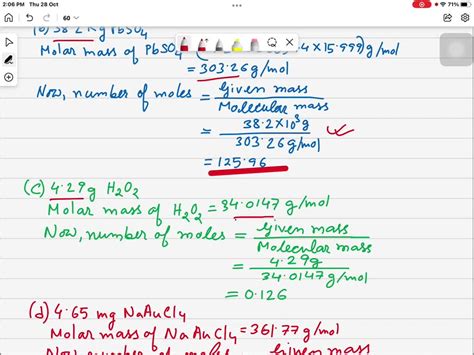 2:06 PM Thu 28 Oct
71%
60
(b) 38.2 kg PbSO4
Molar mass of PbSO4 .4 x 15.999) g/mol
= 303.26 g/mol
Now, number of moles = Given mass
Molecular mass
= 38.2 x 10^3 g
303.26 g/mol
= 125.96
(c) 4.29 g H2O2
Molar mass of H2O2 = 34.0147 g/mol
Now, number of moles = Given mass
Molecular mass
= 4.29 g
34.0147 g/mol
= 0.126
(d) 4.65 mg NaAuCl4
Molar mass of NaAuCl4 = 361.77 g/mol
Now number of moles Given mass